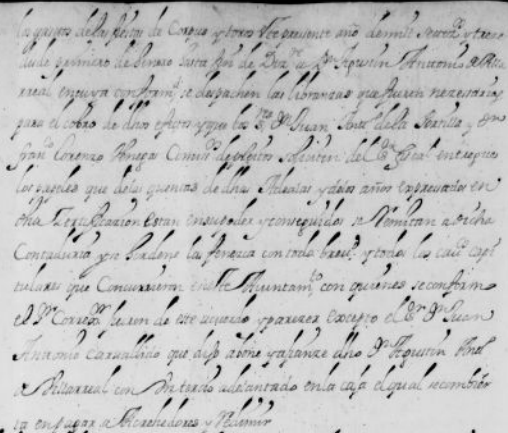 los gastos de las fiestas de Corpus y toros de este presente año de mil setecᵒˢ y trece
desde primero de henero hasta fin de Dizᵉ a Dⁿ Agustin Antonio de Villa
rreal en cuya conformᵈ se despachen las libranzas que fueren necesarias
para el cobro de dhos efectos y que los Sʳᵉˢ Dⁿ Juan de la Portilla y Dⁿ
Franᶜᵒ Lorenzo Venegas Comisᵒˢ de pleitos soliciten del Sʳ fiscal entregue
los papeles que de las quentas de dhas Alcavalas y de los años expresados en
dha Certificazion estan en su poder y conseguidos se Remitan a dicha
Contaduria y se hordene la fenezca con toda brevᵈ y todos los cavᵒˢ capi
tulares que Concurrieron en este Ayuntamᵗᵒ con quienes se conformo
el Sʳ Corregᵒʳ fueron de este acuerdo y parezer excepto el Sʳ Dⁿ Juan
Antonio Carvallido que dijo abone y afianze dho Dⁿ Agustin Anᵗᵒ
de Villarreal con un tercio adelantado en la caja el qual se combier
ta en pagar a Acrehedores y Redimir